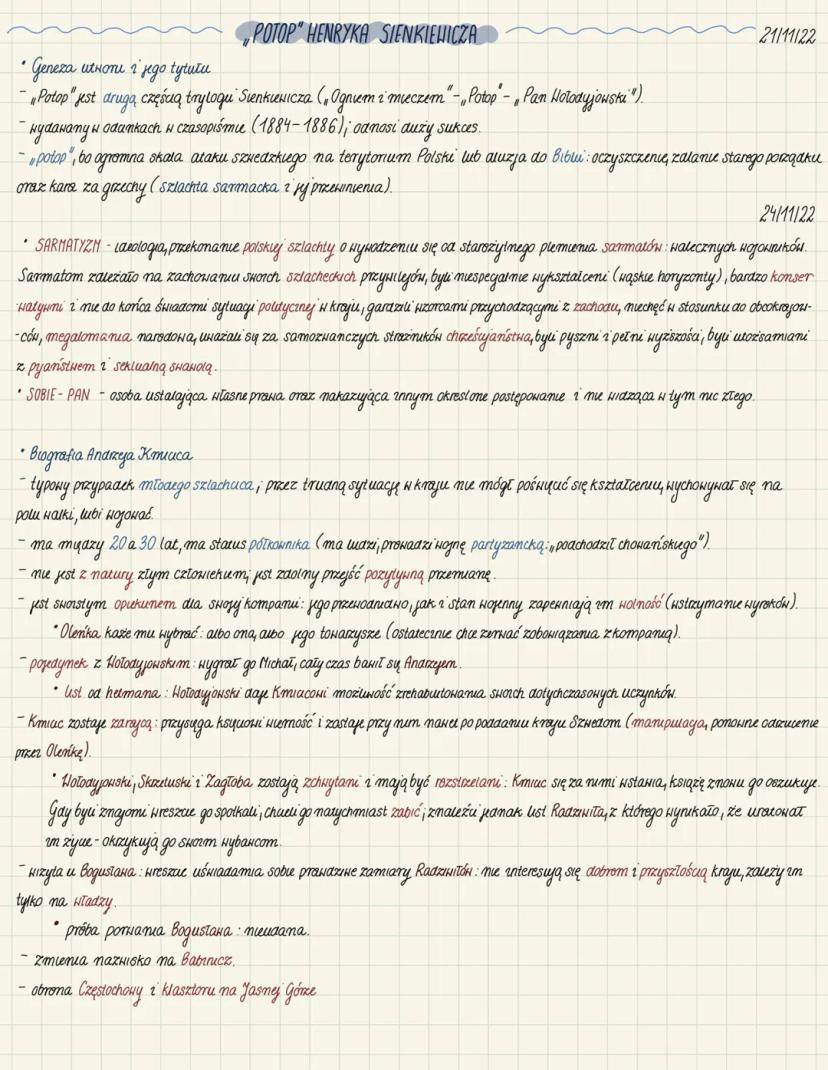 „POTOP" HENRYKA SIENKIEWICZA
21/11/22
• Geneza utworu i jego tytułu
- „Potop" jest drugą częścią trylogii Sienkiewicza („Ogniem i mieczem" - „Potop" - „Pan Wołodyjowski").
- wydawany w odcinkach w czasopiśmie (1884-1886); odnosi duży sukces.
- „potop", bo ogromna skala ataku szwedzkiego na terytorium Polski lub aluzja do Biblii: oczyszczenie, zalanie starego porządku
oraz kara za grzechy (szlachta sarmacka i jej przewinienia).
24/11/22
• SARMATYZM - ideologia, przekonanie polskiej szlachty o wywodzeniu się od starożytnego plemienia sarmatów: walecznych wojowników.
Sarmatom zależało na zachowaniu swoich szlacheckich przywilejów, byli niespecjalnie wykształceni (wąskie horyzonty), bardzo konser-
watywni i nie do końca świadomi sytuacji politycznej w kraju, gardzili wzorcami przychodzącymi z zachodu, niechęć w stosunku do obcokrajow-
-ców, megalomania narodowa, uważali się za samozwańczych strażników chrześcijaństwa, byli pyszni i pełni wyższości, byli utożsamiani
z pijaństwem i seksualną swawolą.
• SOBIE-PAN - osoba ustalająca własne prawa oraz nakazująca innym określone postępowanie i nie widząca w tym nic złego.
• Biografia Andrzeja Kmicica
- typowy przypadek młodego szlachcica; przez trudną sytuację w kraju nie mógł poświęcić się kształceniu, wychowywał się na
polu walki, lubi wojować.
- ma między 20 a 30 lat, ma status półkownika (ma ludzi, prowadzi wojnę partyzancką: „podchodził chowańskiego").
- nie jest z natury złym człowiekiem; jest zdolny przejść pozytywną przemianę.
- jest swoistym opiekunem dla swojej kompanii: jego przewodnictwo, jak i stan wojenny zapewniają im wolność (wstrzymanie wyroków).
• Oleńka każe mu wybrać: albo ona, albo jego towarzysze (ostatecznie chce zerwać zobowiązania z kompanią).
- pojedynek z Wołodyjowskim: wygrał go Michał, cały czas bawił się Andrzejem.
• list od hetmana: Wołodyjowski daje Kmicicowi możliwość zrehabilitowania swoich dotychczasowych uczynków.
- Kmicic zostaje zdrajcą: przysięga księciowi wierność i zostaje przy nim nawet po poddaniu kraju Szwedom (manipulacja, ponowne odrzucenie
przez Oleńkę).
• Wołodyjowski, Skrzetuski i Zagłoba zostają schwytani i mają być rozstrzelani: Kmicic się za nimi wstawia, książę znowu go oszukuje.
Gdy byli znajomi wreszcie go spotkali, chcieli go natychmiast zabić; znaleźli jednak list Radziwiłła, z którego wynikało, że uratował
im życie - okrzykują go swoim wybawcą.
- wizyta u Bogusława: wreszcie uświadamia sobie prawdziwe zamiary Radziwiłłów: nie interesują się dobrem i przyszłością kraju, zależy im
tylko na władzy.
• próba porwania Bogusława: nieudana.
- zmienia nazwisko na Babinicz.
- obrona Częstochowy i klasztoru na Jasnej Górze